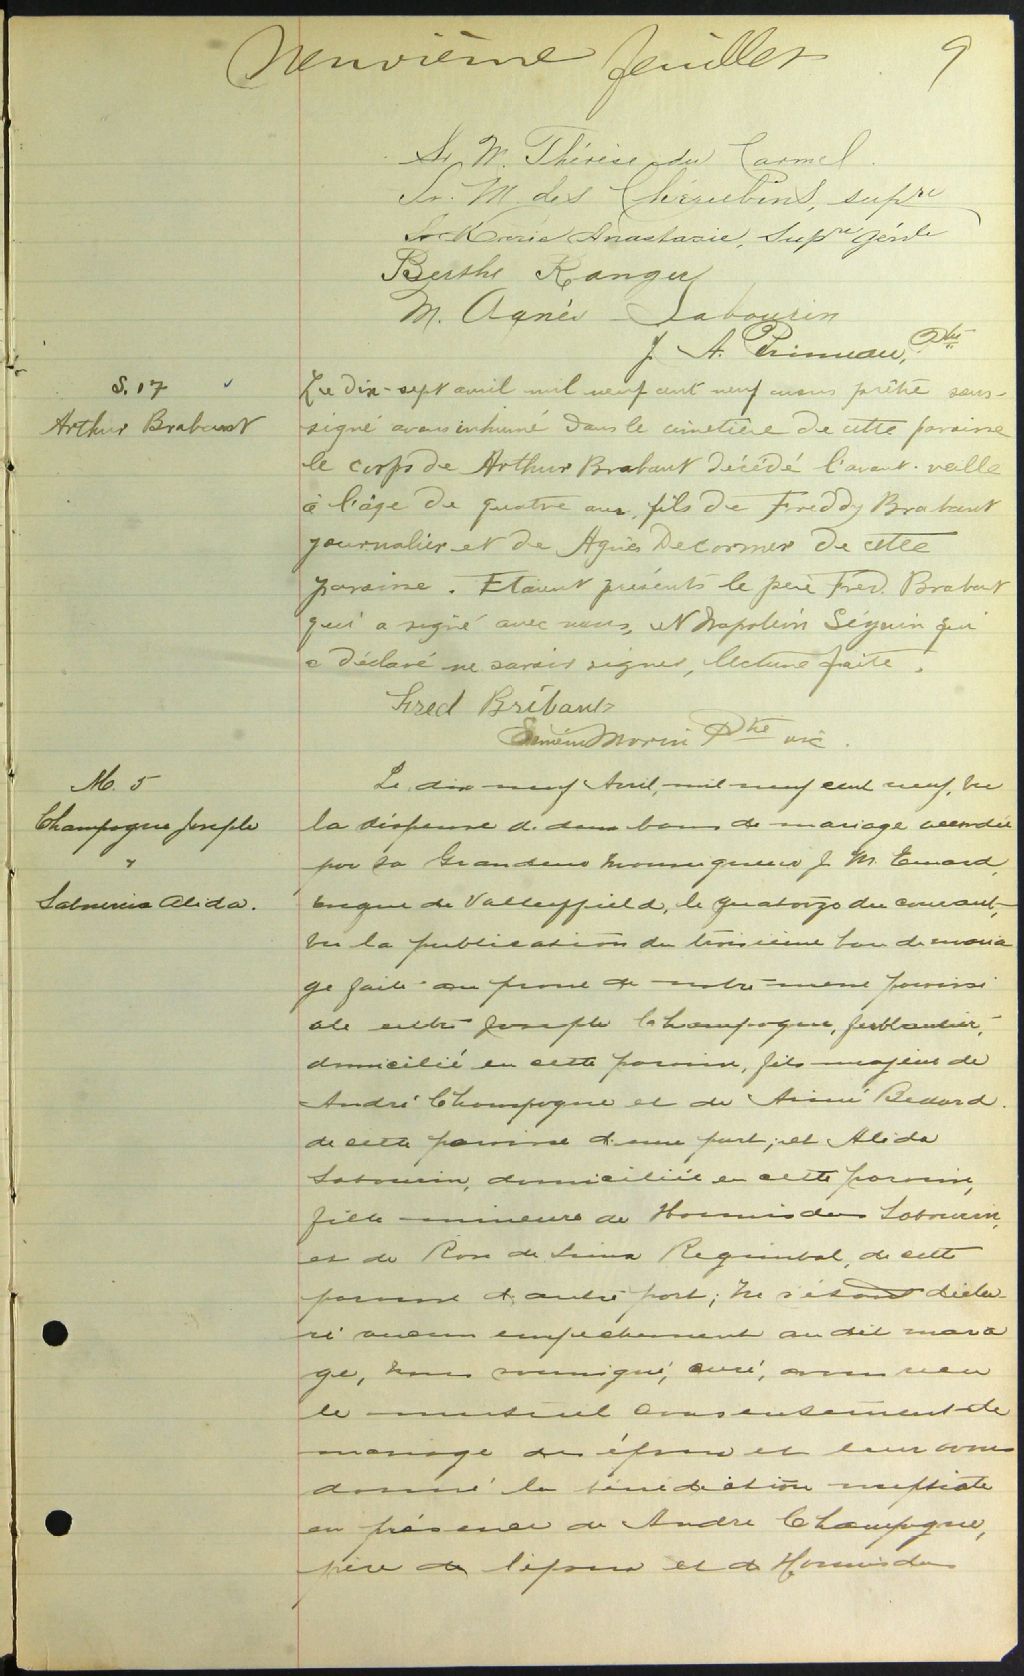 Neuvième feuillet 9
Sr. M. Thérèse du Carmel.
Sr. M. des Chérubins, supre
Sr Marie Anastasie, Supre Génle
Berthe Ranger
M. Agnès Sabourin
J. A. Primeau, Ptre
S. 17
Arthur Brabant
Le dix-sept avril mil neuf cent neuf nous prêtre sous-
signé avons inhumé dans le cimetière de cette paroisse
le corps de Arthur Brabant décédé l'avant-veille
à l'âge de quatre ans, fils de Freddy Brabant
journalier et de Agnès Decormer de cette
paroisse. Etaient présents le père Fred. Brabant
qui a signé avec nous, et Napoléon Séguin qui
a déclaré ne savoir signer, lecture faite.
Fred Brebant
Morin Ptre vic.
M. 5
Champagne Joseph
"
Sabourin Alida.
Le dix-neuf Avril, mil neuf cent neuf, vu
la dispense de deux bans de mariage accordée
par sa Grandeur Monseigneur J. M. Emard,
évêque de Valleyfield, le quatorze du courant,
vu la publication du troisième ban de maria
ge faite au prône de notre messe paroissi
ale entre Joseph Champagne, ferblantier,
domicilié en cette paroisse, fils majeur de
André Champagne et de Aimé Bedard.
de cette paroisse d'une part; et Alida
Sabourin, domiciliée en cette paroisse,
fille mineure de Hormisdas Sabourin,
et de Rose de Lima Regimbal, de cette
paroisse d'autre part; ne s'étant décla-
ré aucun empêchement au dit maria
ge, nous soussigné, curé, avons reçu
le mutuel consentement de
mariage des époux et leur avons
donné la bénédiction nuptiale
en présence de André Champagne,
père de l'époux et de Hormisdas